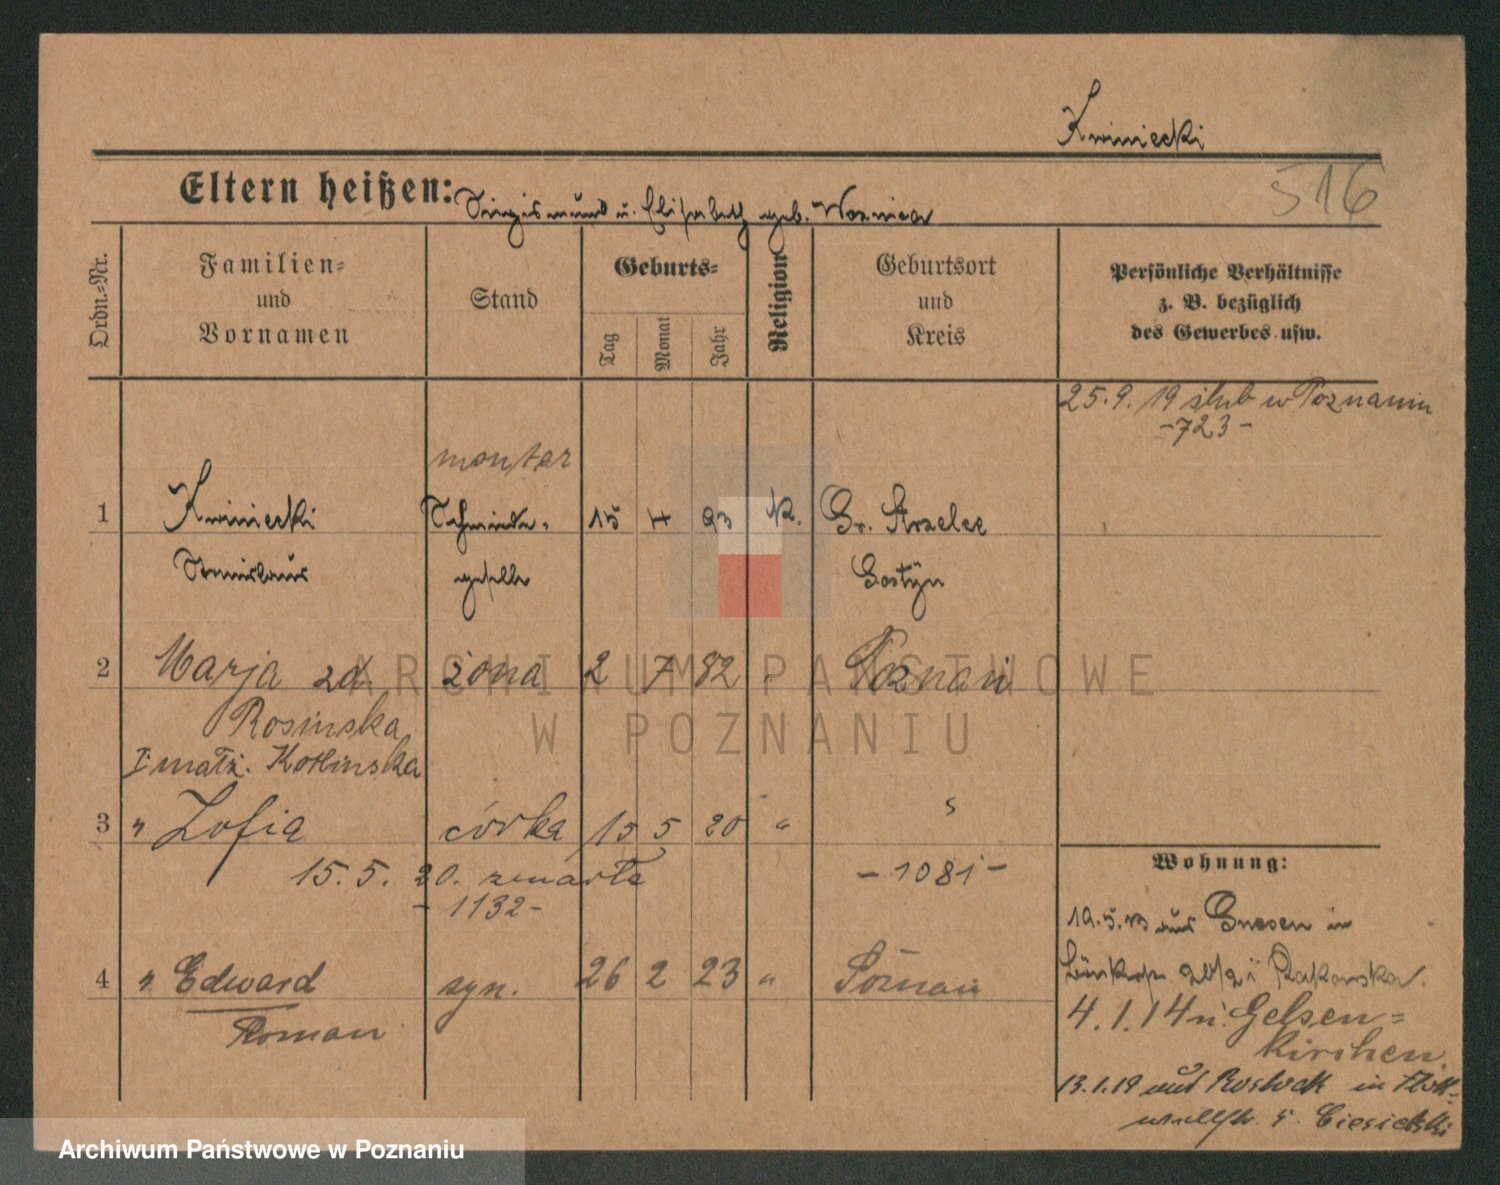 Kwiniecki
516
Eltern heißen: Sigismund u. Elisabeth geb. Woznica
Ordn.-Nr.
Familien-
und
Vornamen
Stand
Geburts-
Tag
Monat
Jahr
Religion
Geburtsort
und
Kreis
Persönliche Verhältnisse
z. B. bezüglich
des Gewerbes usw.
25.9.19 ślub w Poznaniu
-723-
monter
1 Kwiniecki Schmiede- 15 4 93 K. Gr. Strzelce
Stanislaus geselle Gostÿn
2 Marja zd. żona 2 7 82 " Poznań
Rosinska
I małż. Kotlinska
3 " Zofia córka 15 5 20 " "
15.5.20. zmarła -1081-
-1132-
4 " Edward syn. 26 2 23 " Poznań
Roman
Wohnung:
19.5.13 aus Gnesen in
20/21 Rakowska.
4.1.14 n. Gelsen-
kirchen
13.1.19 aus Rostock in
5. Ciesielski
ARCHIWUM PAŃSTWOWE
W POZNANIU
Archiwum Państwowe w Poznaniu